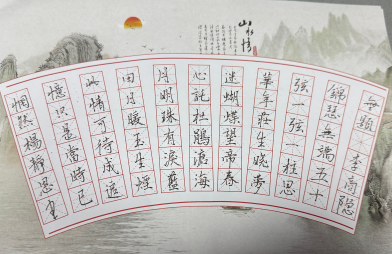 山水情
無題·李商隐
錦瑟無端五十
弦一弦一柱思
華年莊生晓夢
迷蝴蝶望帝春
心託杜鵑滄海
月明珠有淚藍
田日暖玉生煙
此情可待成追
憶只是當時已
惘然楊靜思書